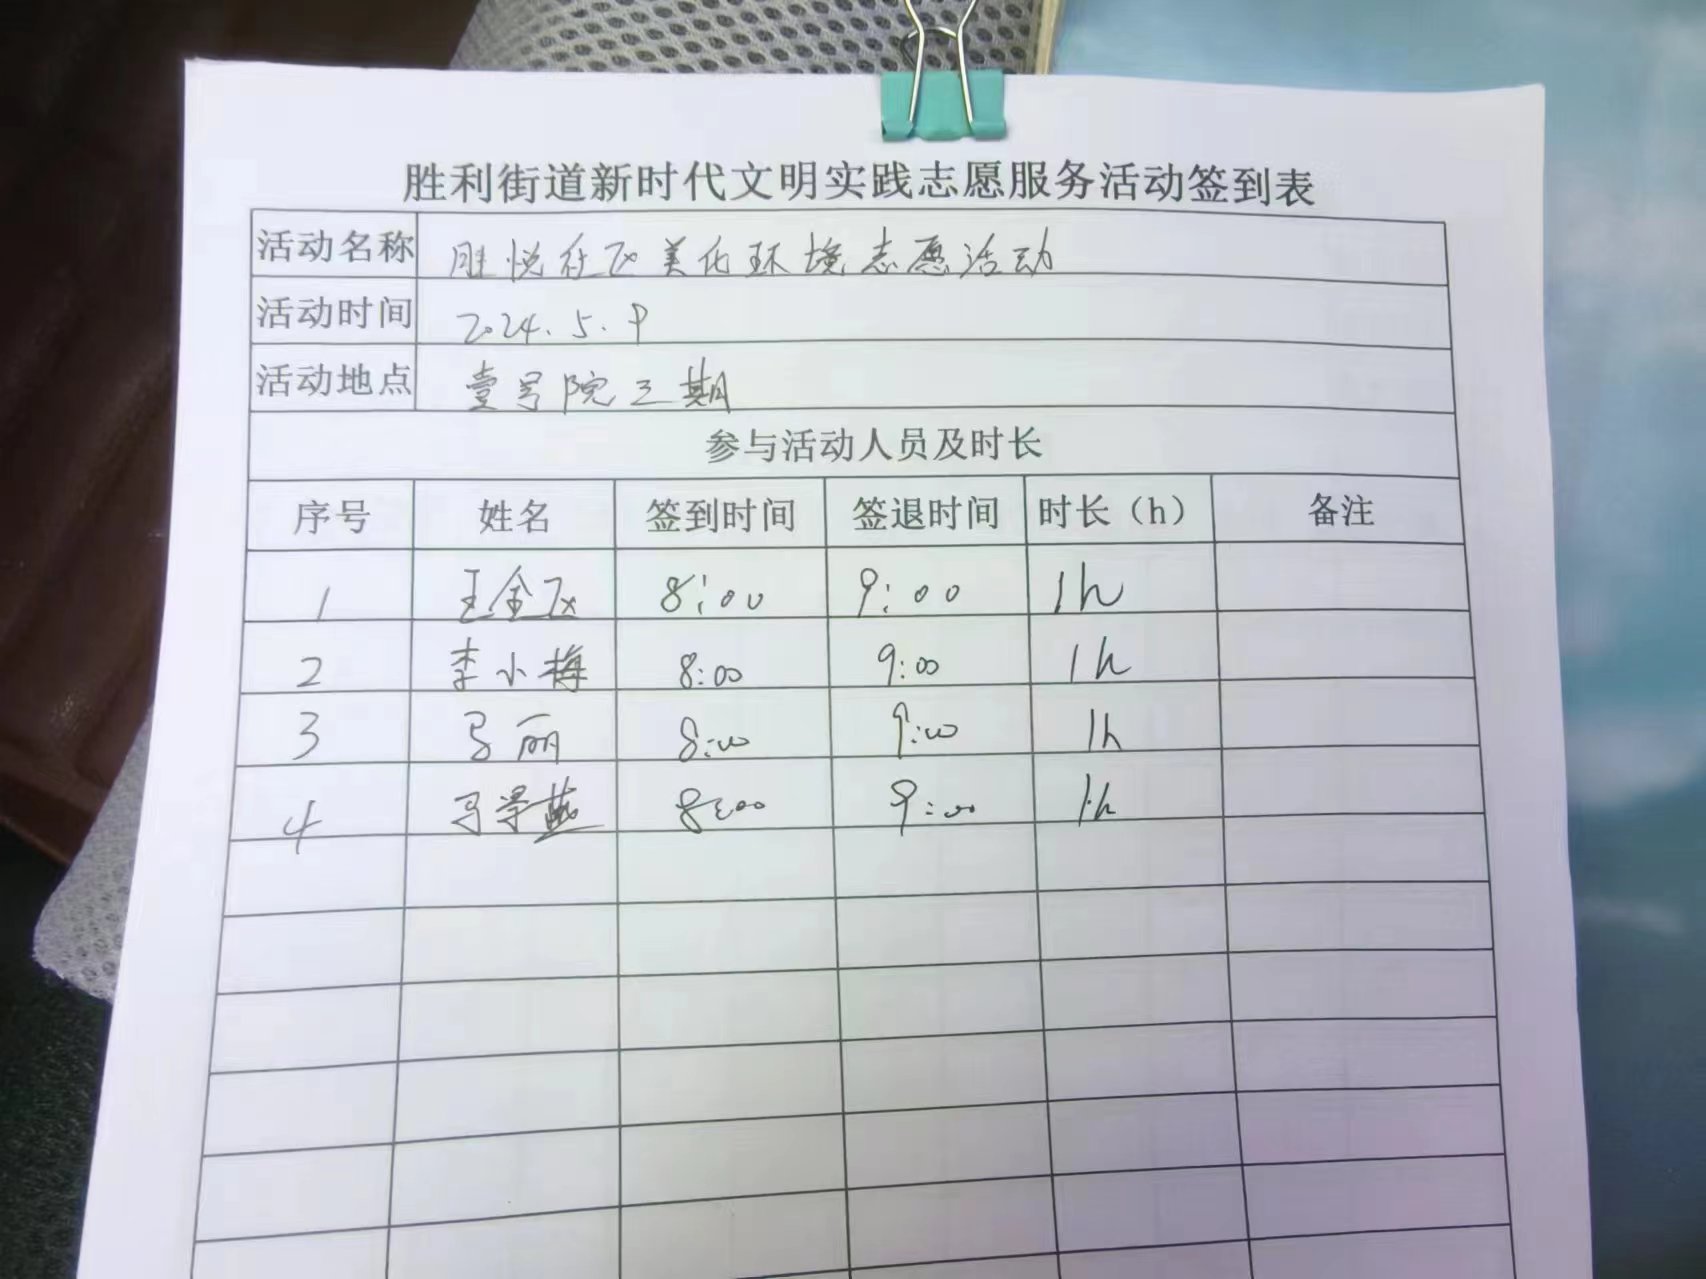 胜利街道新时代文明实践志愿服务活动签到表
活动名称 胜悦社区美化环境志愿活动
活动时间 2024.5.9
活动地点 壹号院三期
参与活动人员及时长
序号 姓名 签到时间 签退时间 时长（h） 备注
1 王金区 8:00 9:00 1h
2 李小梅 8:00 9:00 1h
3 马丽 8:00 9:00 1h
4 马学燕 8:00 9:00 1h